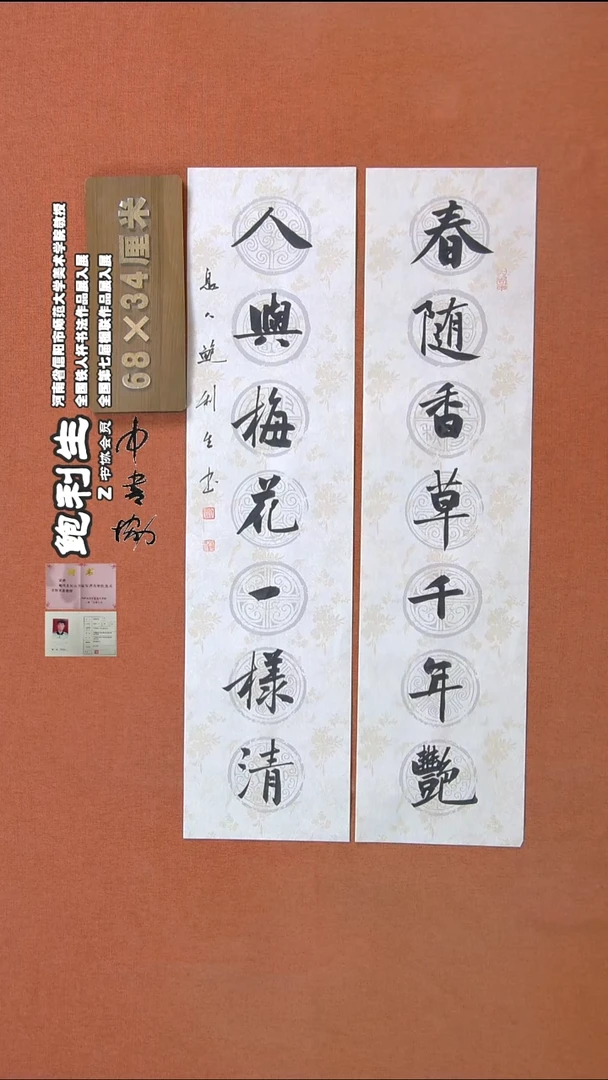 春随香草千年艷
人與梅花一樣清
鮑利生书
68×34厘米
河南省信阳市师范大学美术学院教授
全国铁人杯书法作品展入展
全国第七届楹联作品展入展
鲍利生
Z书协会员
中书协